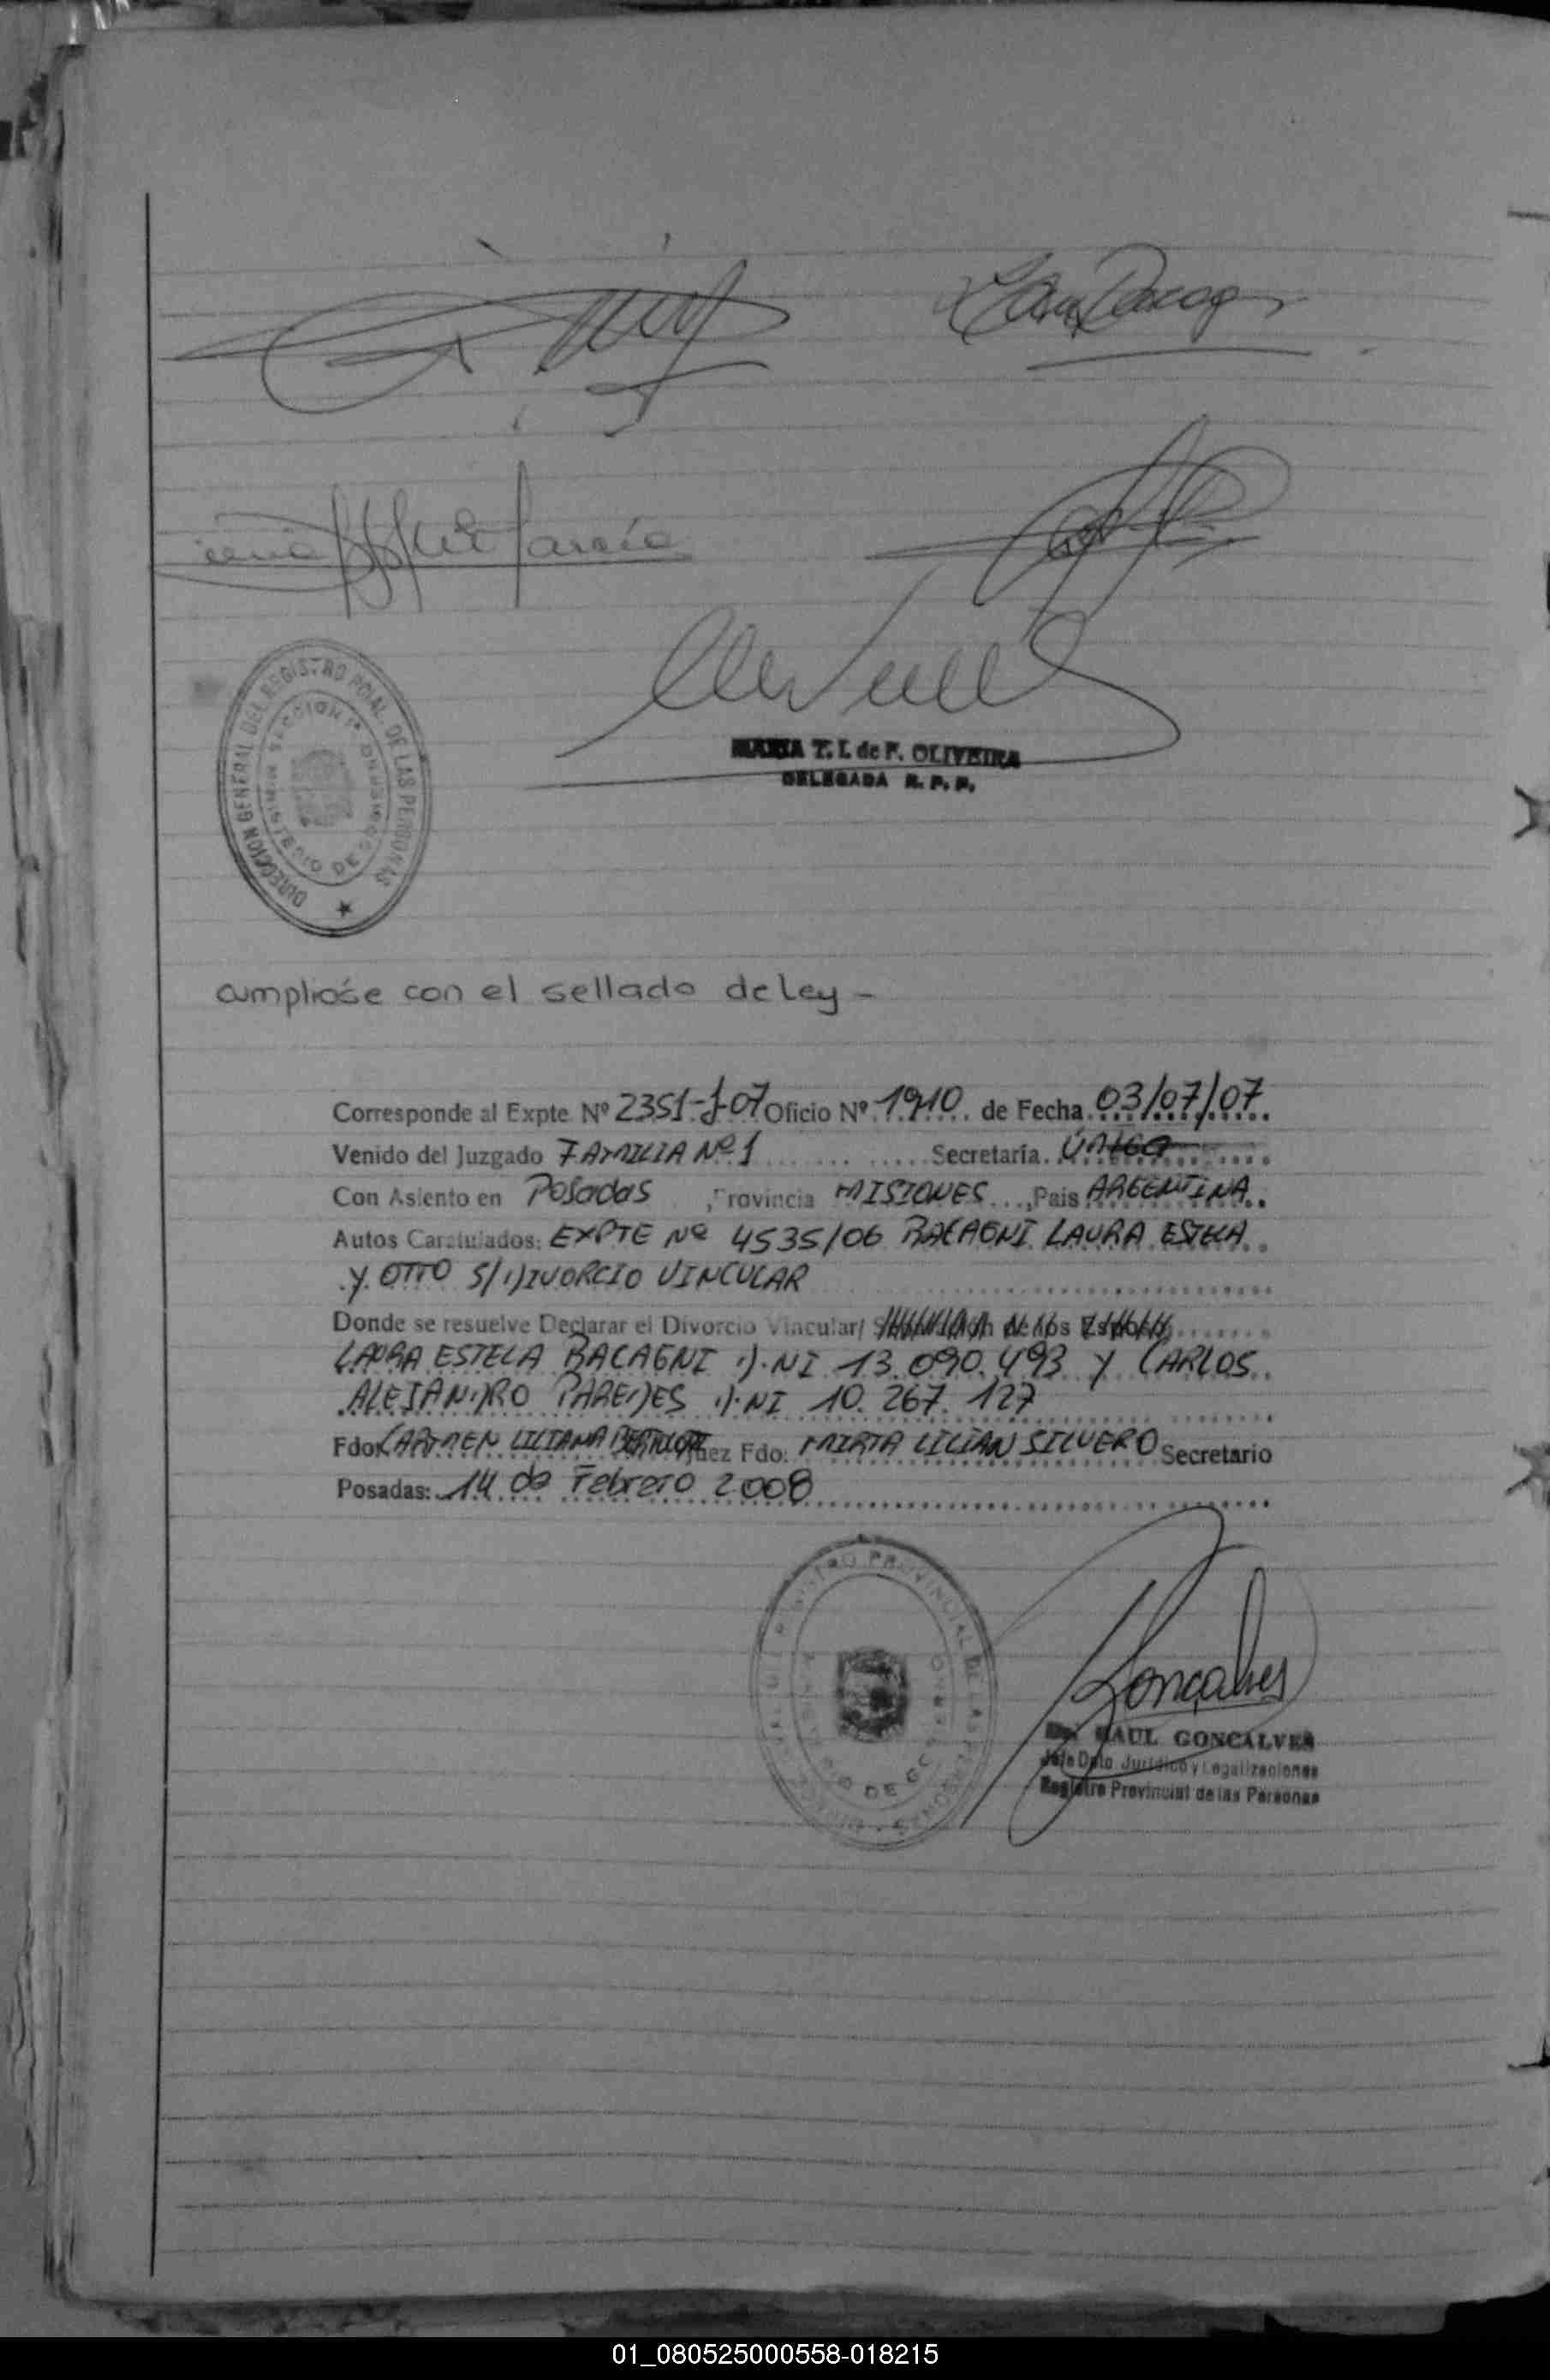 García
DIRECCION GENERAL DEL REGISTRO PCIAL. DE LAS PERSONAS
MINISTERIO DE GOBIERNO
MARIA T. I. de F. OLIVEIRA
DELEGADA R. P. P.
cumplióse con el sellado de ley -
Corresponde al Expte Nº 2351-J-07 Oficio Nº 1910 de Fecha 03/07/07
Venido del Juzgado FAMILIA Nº 1 Secretaría. ÚNICA
Con Asiento en Posadas, Provincia MISIONES, Pais ARGENTINA
Autos Caratulados: EXPTE Nº 4535/06 BACAGNI LAURA ESTELA
Y OTRO S/DIVORCIO VINCULAR
Donde se resuelve Declarar el Divorcio Vincular/ de los Esposos
LAURA ESTELA BACAGNI D.NI 13.090.493 Y CARLOS
ALEJANDRO PAREDES D.NI 10.267.127
Fdo: CARMEN LILIANA Juez Fdo: MIRTA LILIAN SILVERO Secretario
Posadas: 14 de Febrero 2008
REGISTRO PROVINCIAL DE LAS PERSONAS
DE GOBIERNO
Goncalves
RAUL GONCALVES
Jefe Dpto. Jurídico y Legalizaciones
Registro Provincial de las Personas
01_080525000558-018215